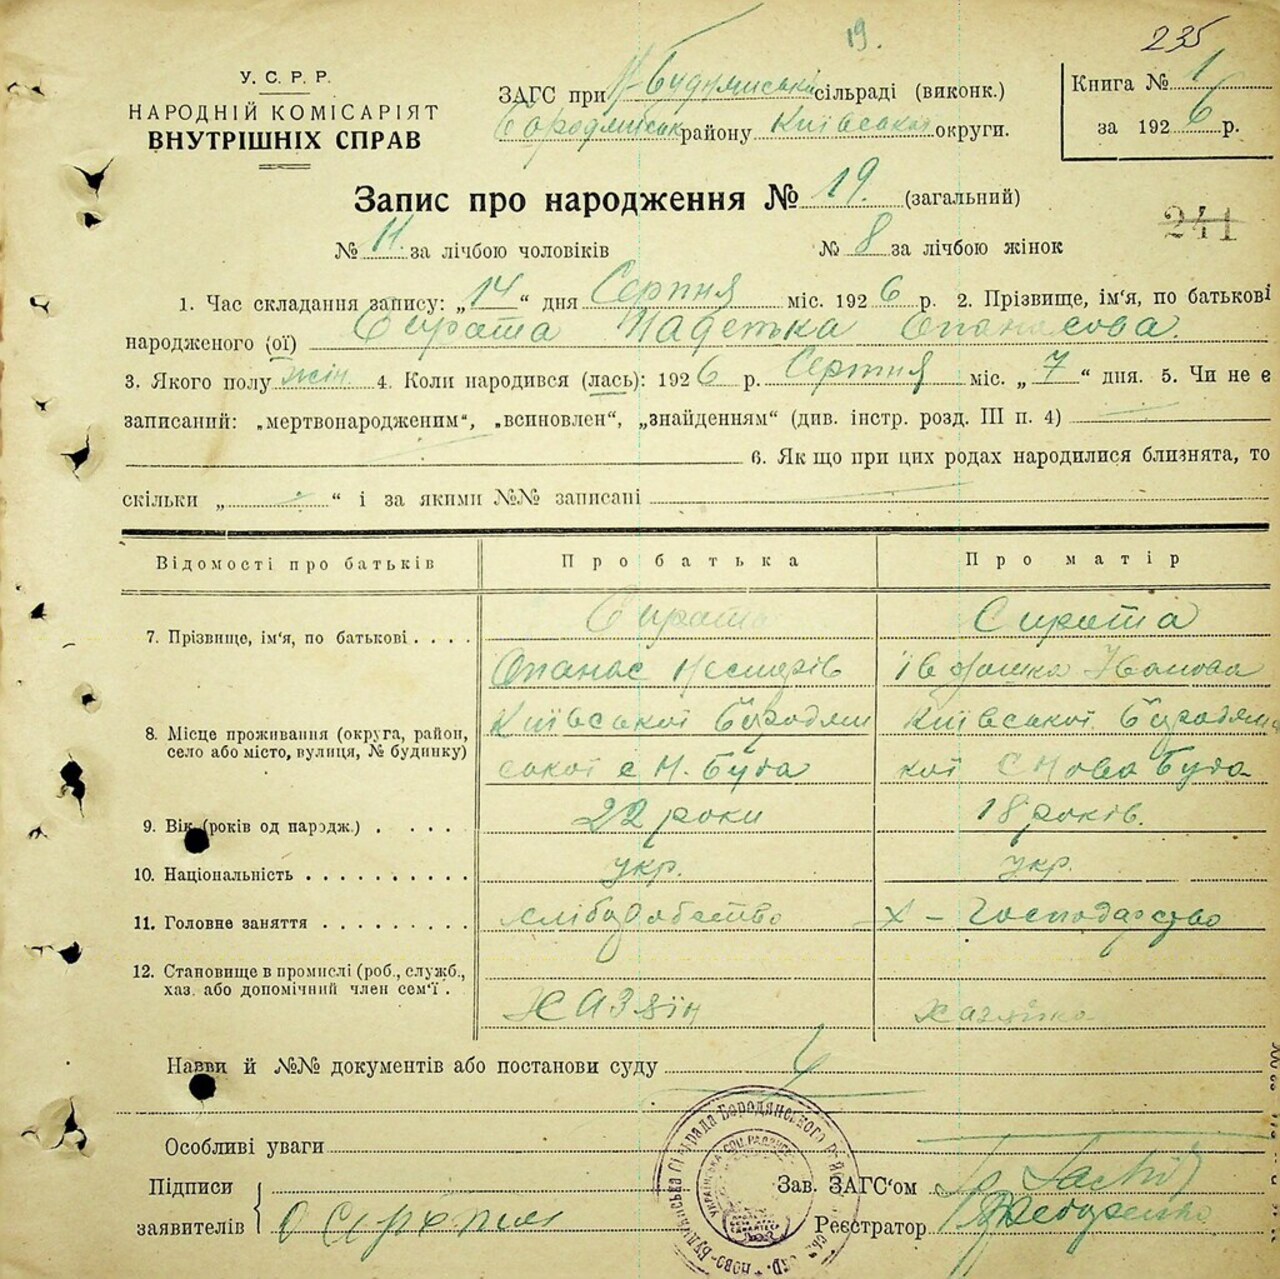 19.
235
У. С. Р. Р.
НАРОДНІЙ КОМІСАРІЯТ
ВНУТРІШНІХ СПРАВ
ЗАГС при сільраді (виконк.)
району Київської округи.
Книга № 1
за 1926 р.
Запис про народження № 19. (загальний)
241
№ 11 за лічбою чоловіків № 8 за лічбою жінок
1. Час складання запису: „14“ дня Серпня міс. 1926 р. 2. Прізвище, ім'я, по батькові
народженого (ої) Сирота Надежка Опанасова.
3. Якого полу жін. 4. Коли народився (лась): 1926 р. Серпня міс. „7“ дня. 5. Чи не є
записаний: „мертвонародженим“, „всиновлен“, „знайденням“ (див. інстр. розд. III п. 4)
6. Як що при цих родах народилися близнята, то
скільки „ “ і за якими №№ записані
Відомості про батьків Про батька Про матір
7. Прізвище, ім'я, по батькові . . . . Сирота Сирота
Опанас Нестерів Іванова
8. Місце проживання (округа, район, село або місто, вулиця, № будинку) Київської Бородян Київської Бородянс
ської с Н. Буда кої С Нова Буда
9. Вік (років од народж.) . . . . . 22 роки 18 років.
10. Національність . . . . . . . . . . укр. укр.
11. Головне заняття . . . . . . . . . хлібробство х – Господарство
12. Становище в промислі (роб., служб., хаз. або допомічний член сем'ї .
Хазяїн Хазяйка
Назви й №№ документів або постанови суду
Особливі уваги
Підписи
заявителів О Сирота
Зав. ЗАГС'ом
Реєстратор